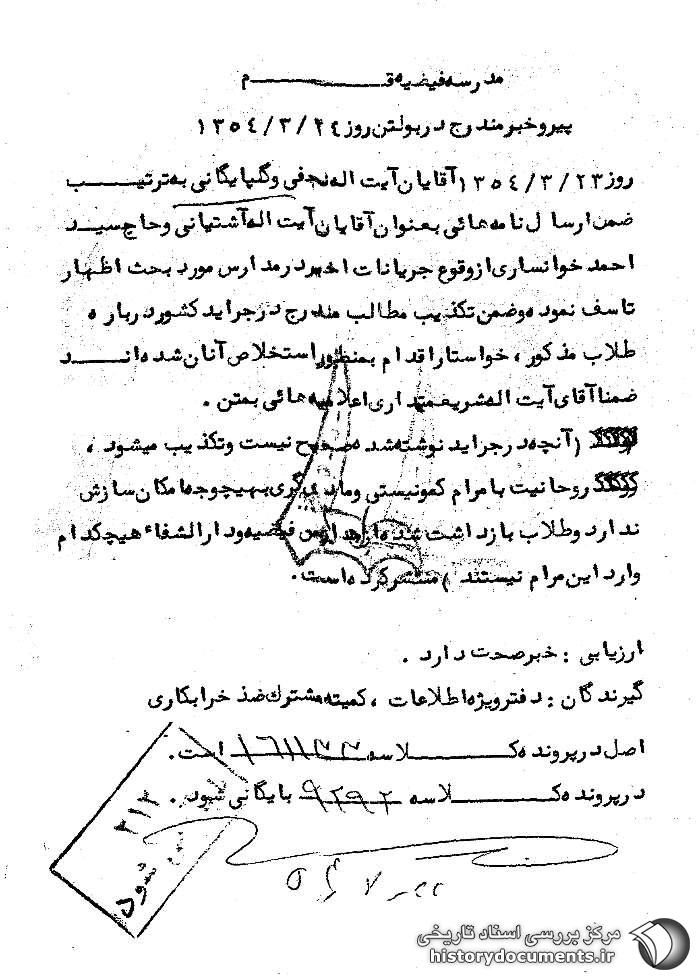 مدرسه فیضیه قـــــــــم
پیرو خبر مندرج در بولتن روز ۱۳۵٤/۳/۲٤
روز ۱۳۵٤/۳/۲۳ آقایان آیت اله نجفی و گلپایگانی به ترتیـــــب
ضمن ارسال نامه هائی بعنوان آقایان آیت اله آشتیانی و حاج سیـد
احمد خوانساری از وقوع جریانات اخیر در مدارس مورد بحث اظهار
تاسف نموده و ضمن تکذیب مطالب مندرج در جراید کشور درباره
طلاب مذکور ، خواستار اقدام بمنظور استخلاص آنان شده انـــــد
ضمنا آقای آیت اله شریعتمداری اعلامیه هائی بمتن .
( آنچه در جراید نوشته شده صحیح نیست و تکذیب میشود ،
روحانیت با مرام کمونیستی و مادی گری بهیچوجه امکان سازش
ندارد و طلاب بازداشت شده از مدارس فیضیه و دارالشفاء هیچکدام
وارد این مرام نیستند ) منتشر کرده است .
ارزیابی : خبر صحت دارد .
گیرندگان : دفتر ویژه اطلاعات ، کمیته مشترك ضد خرابکاری
اصل در پرونده کـــــــــلاسه ۱٦۱۱۳۳ است .
در پرونده کـــــــــلاسه ۹۲۹۲ بایگانی شود .
۳۱۲
شود
مرکز بررسی اسناد تاریخی
historydocuments.ir